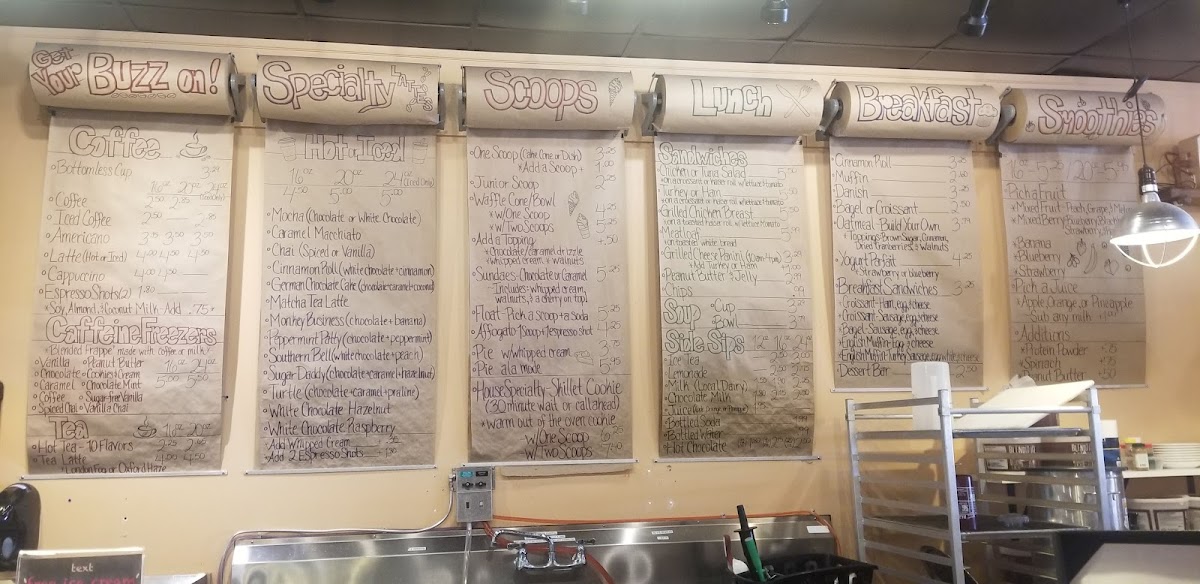 Get
Your Buzz on!
Coffee
Bottomless Cup 3.29
16oz 20oz 24oz
Coffee 2.50 2.85
Iced Coffee 2.50
Americano
Latte (Hot or Iced) 4.00
Cappuccino 4.00
Espresso Shots (2) 1.80
Soy, Almond, & Coconut Milk Add .75
Caffeine Freezers
Blended frappe made with coffee or milk
16oz 24oz
Vanilla Peanut Butter
Chocolate Cookies & Cream 5.00 5.50
Caramel Chocolate Mint
Coffee Sugar-free Vanilla
Spiced Chai Vanilla Chai
Tea 16oz 20oz
Hot Tea - 10 Flavors 2.25
Tea Latte 4.00 4.50
London Fog or Oxford Haze
Specialty LATTES
Hot or Iced
16oz 20oz 24oz
(Iced Only)
4.50 5.00 5.50
Mocha (Chocolate or White Chocolate)
Caramel Macchiato
Chai (Spiced or Vanilla)
Cinnamon Roll (white chocolate + cinnamon)
German Chocolate Cake (chocolate + caramel + coconut)
Matcha Tea Latte
Monkey Business (chocolate + banana)
Peppermint Patty (chocolate + peppermint)
Southern Bell (white chocolate + peach)
Sugar Daddy (chocolate + caramel + hazelnut)
Turtle (chocolate + caramel + praline)
White Chocolate Hazelnut
White Chocolate Raspberry
Add Whipped Cream
Add 2 Espresso Shots
Scoops
One Scoop (Cake Cone or Dish) 3.25
Add a Scoop + 1.00
Junior Scoop 2.25
Waffle Cone/Bowl
w/One Scoop 4.25
w/Two Scoops 5.25
Add a Topping +.50
Chocolate/caramel drizzle
whipped cream + walnuts
Sundaes - Chocolate or Caramel 5.25
Includes: whipped cream,
walnuts, & a cherry on top!
Float Pick a scoop + a Soda 5.25
Affogato 1 scoop + 1 espresso shot 4.25
Pie w/whipped cream 3.75
Pie a la mode 5.95
House Specialty Skillet Cookie
(30 minute wait or call ahead)
Warm out of the oven cookie
w/One Scoop
w/Two Scoops
Lunch
Sandwiches
Chicken or Tuna Salad
on a croissant or kaiser roll w/lettuce + tomato
Turkey or Ham
on a croissant or kaiser roll w/lettuce + tomato
Grilled Chicken Breast
on toasted kaiser roll w/lettuce + tomato
Meatloaf
on toasted white bread
Grilled Cheese Panini
Add Turkey or Ham
Peanut Butter + Jelly
Chips .99
Soup Cup
Bowl 3.79
Side Sips 16oz 24oz
Ice Tea
Lemonade
Milk (Local Dairy)
Chocolate Milk
Juice
Bottled Soda
Bottled Water
Hot Chocolate
Breakfast
Cinnamon Roll
Muffin 2.60
Danish
Bagel or Croissant 2.50
Oatmeal - Build Your Own 3.79
Toppings - Brown Sugar, Cinnamon,
Dried Cranberries, & Walnuts
Yogurt Parfait 4.25
Strawberry or blueberry
Breakfast Sandwiches 3.25
Croissant - Ham, egg, & cheese
Croissant - Sausage, egg, & cheese
Bagel - Sausage, egg, & cheese
English Muffin - Egg + cheese
English Muffin - Turkey Sausage, egg white, cheese
Dessert Bar 2.50
Smoothies
16oz - 5.25 20oz - 5.75
Pick a Fruit
Mixed Berry
Banana
Blueberry
Strawberry
Pick a Juice
Apple, Orange, or Pineapple
Sub any milk
Additions
Protein Powder
Spinach
Peanut Butter +.50
text